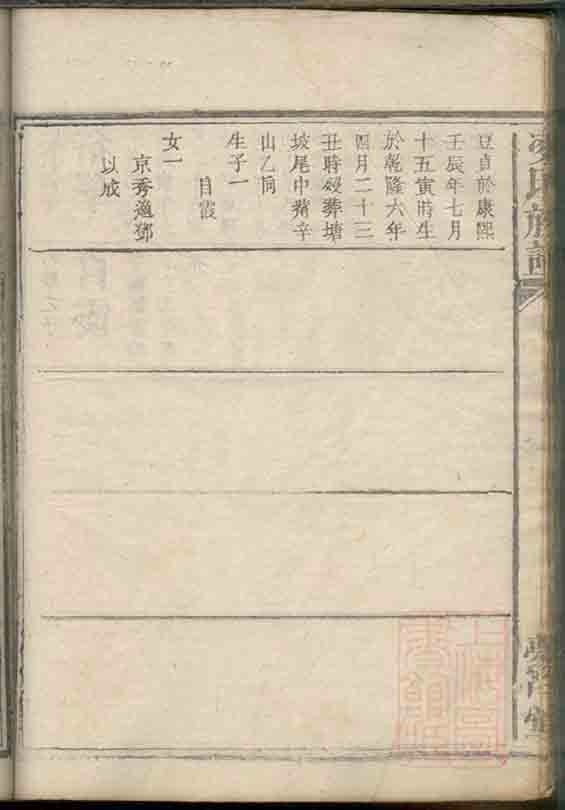 豆貞於康熙
壬辰年七月
十五寅時生
於乾隆六年
四月二十三
丑時歿葬塘
坡尾中嘴辛
山乙向
生子一
自霞
女一
京秀適鄧
以成
氏族譜